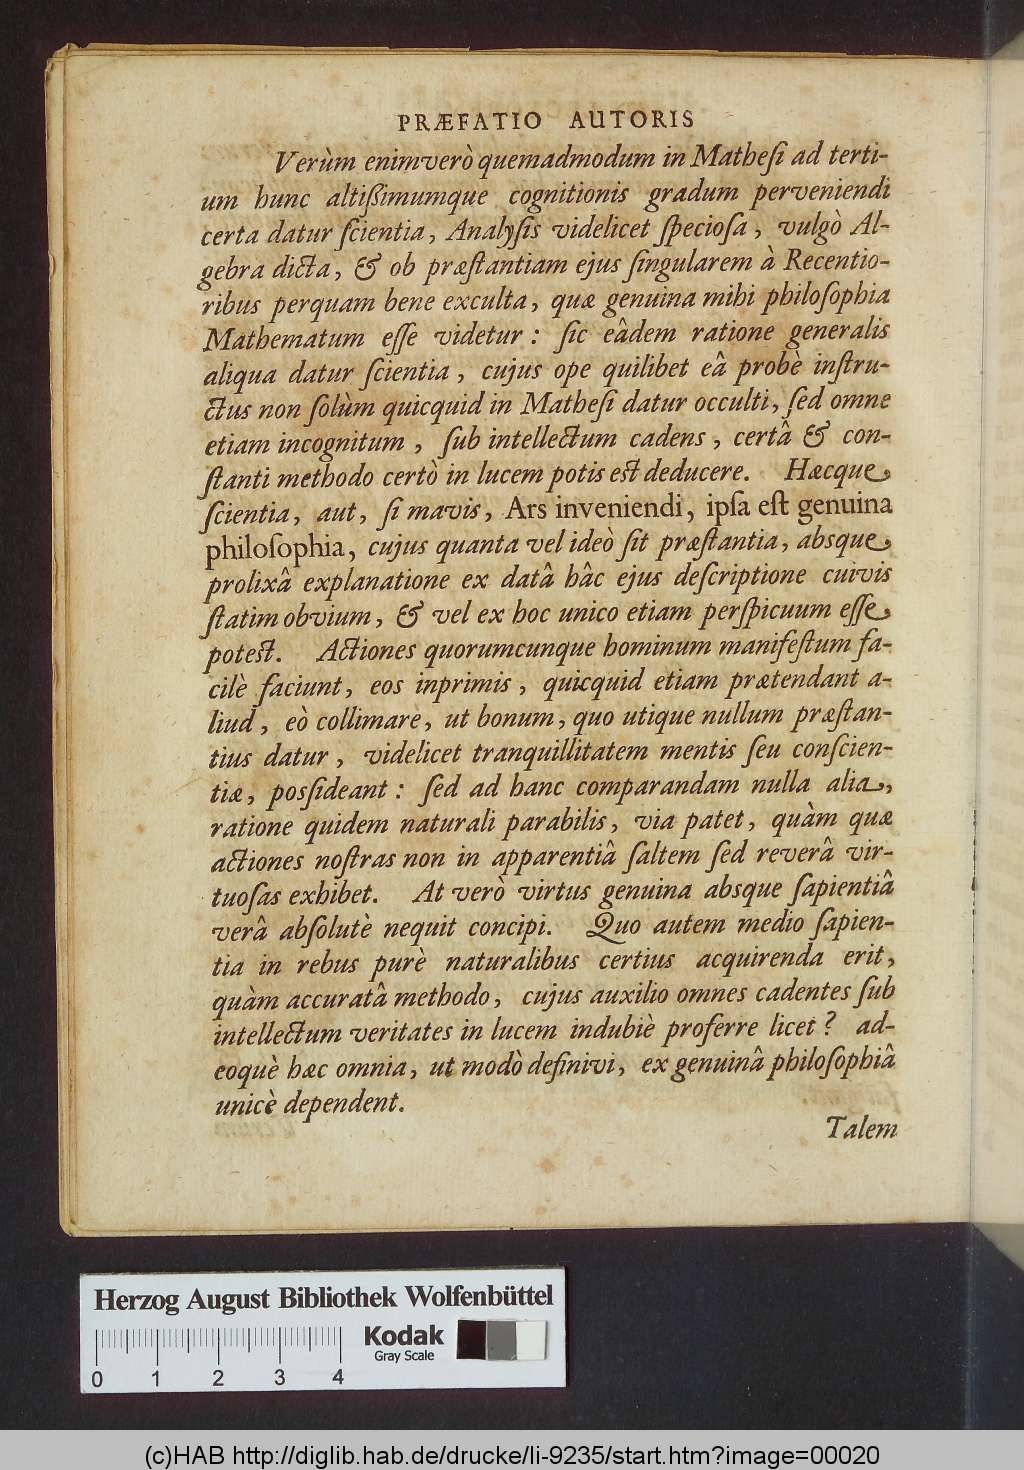 PRÆFATIO AUTORIS
Verùm enimverò quemadmodum in Matheſi ad terti-
um hunc altiſſimumque cognitionis gradum perveniendi
certa datur ſcientia, Analyſis videlicet ſpecioſa, vulgò Al-
gebra dicta, & ob præſtantiam ejus ſingularem à Recentio-
ribus perquam bene exculta, quæ genuina mihi philoſophia
Mathematum eſſe videtur: ſic eâdem ratione generalis
aliqua datur ſcientia, cujus ope quilibet eâ probè inſtru-
ctus non ſolùm quicquid in Matheſi datur occulti, ſed omne
etiam incognitum, ſub intellectum cadens, certâ & con-
ſtanti methodo certò in lucem potis est deducere. Hæcque
ſcientia, aut, ſi mavis, Ars inveniendi, ipſa eſt genuina
philoſophia, cujus quanta vel ideò ſit præſtantia, absque
prolixâ explanatione ex datâ hâc ejus deſcriptione cuivis
ſtatim obvium, & vel ex hoc unico etiam perſpicuum eſſe
potest. Actiones quorumcunque hominum manifeſtum fa-
cilè faciunt, eos inprimis, quicquid etiam prætendant a-
liud, eò collimare, ut bonum, quo utique nullum præſtan-
tius datur, videlicet tranquillitatem mentis ſeu conſcien-
tiæ, posſideant: ſed ad hanc comparandam nulla alia,
ratione quidem naturali parabilis, via patet, quàm quæ
actiones noſtras non in apparentiâ ſaltem ſed reverâ vir-
tuoſas exhibet. At verò virtus genuina absque ſapientiâ
verâ abſolutè nequit concipi. Quo autem medio ſapien-
tia in rebus purè naturalibus certius acquirenda erit,
quàm accuratâ methodo, cujus auxilio omnes cadentes ſub
intellectum veritates in lucem indubiè proferre licet? ad-
eoquè hæc omnia, ut modò definivi, ex genuinâ philoſophiâ
unicè dependent.
Talem
Herzog August Bibliothek Wolfenbüttel
Kodak
Gray Scale
0 1 2 3 4
(c)HAB http://diglib.hab.de/drucke/li-9235/start.htm?image=00020